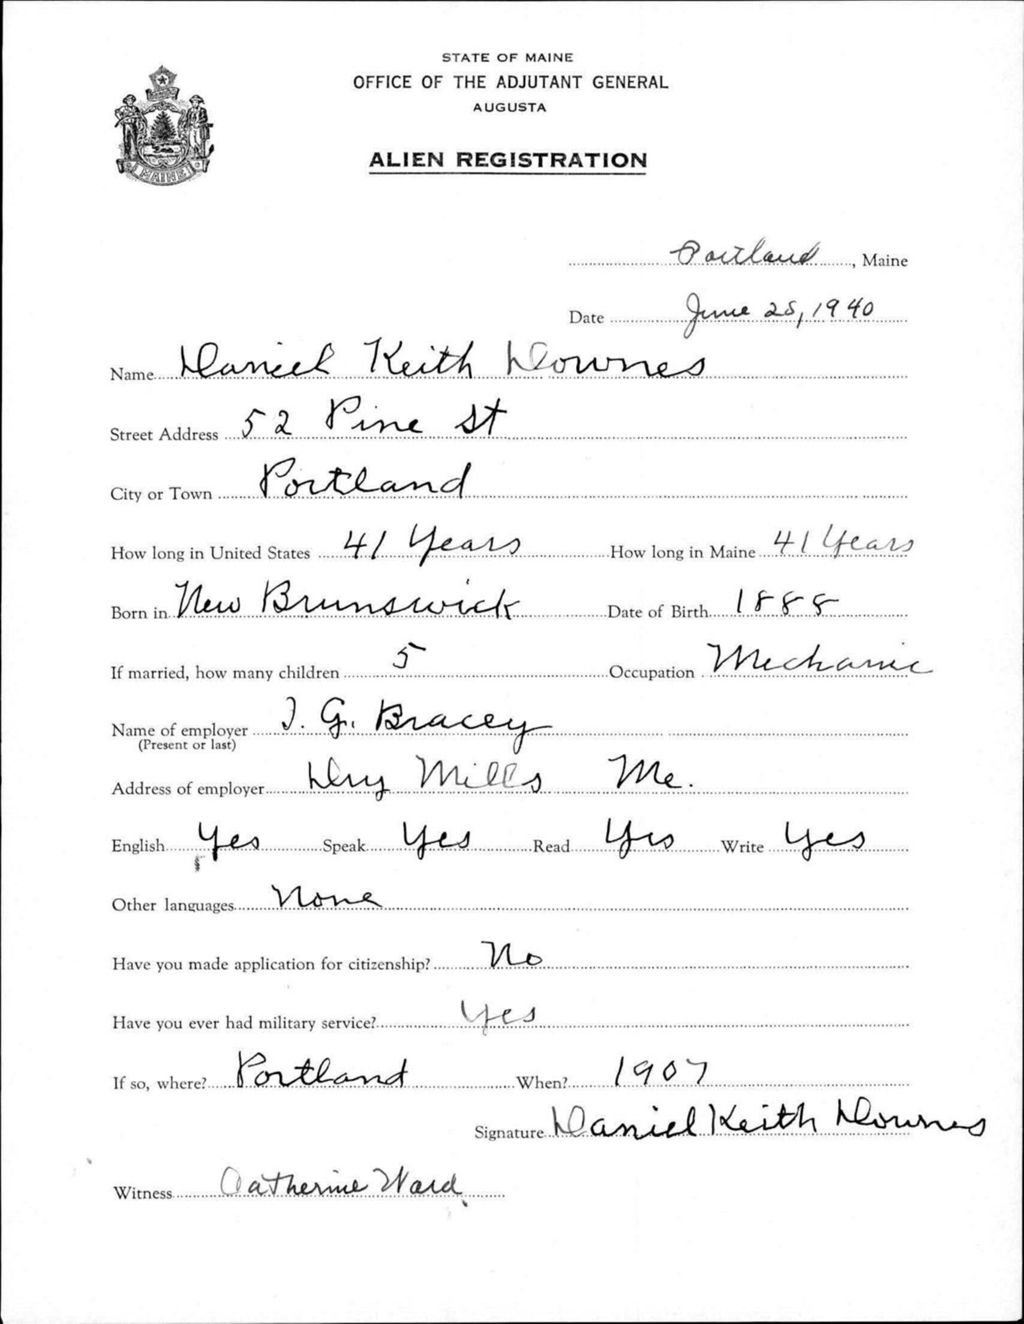 STATE OF MAINE
OFFICE OF THE ADJUTANT GENERAL
AUGUSTA
ALIEN REGISTRATION
MAINE
Portland, Maine
Date June 28, 1940
Name Daniel Keith Downes
Street Address 52 Pine St
City or Town Portland
How long in United States 41 Years How long in Maine 41 Years
Born in New Brunswick Date of Birth 1888
If married, how many children 5 Occupation Mechanic
Name of employer J. G. Bracey
(Present or last)
Address of employer Dry Mills Me.
English Yes Speak Yes Read Yes Write Yes
Other languages None
Have you made application for citizenship? No
Have you ever had military service? Yes
If so, where? Portland When? 1907
Signature Daniel Keith Downes
Witness Catherine Ward